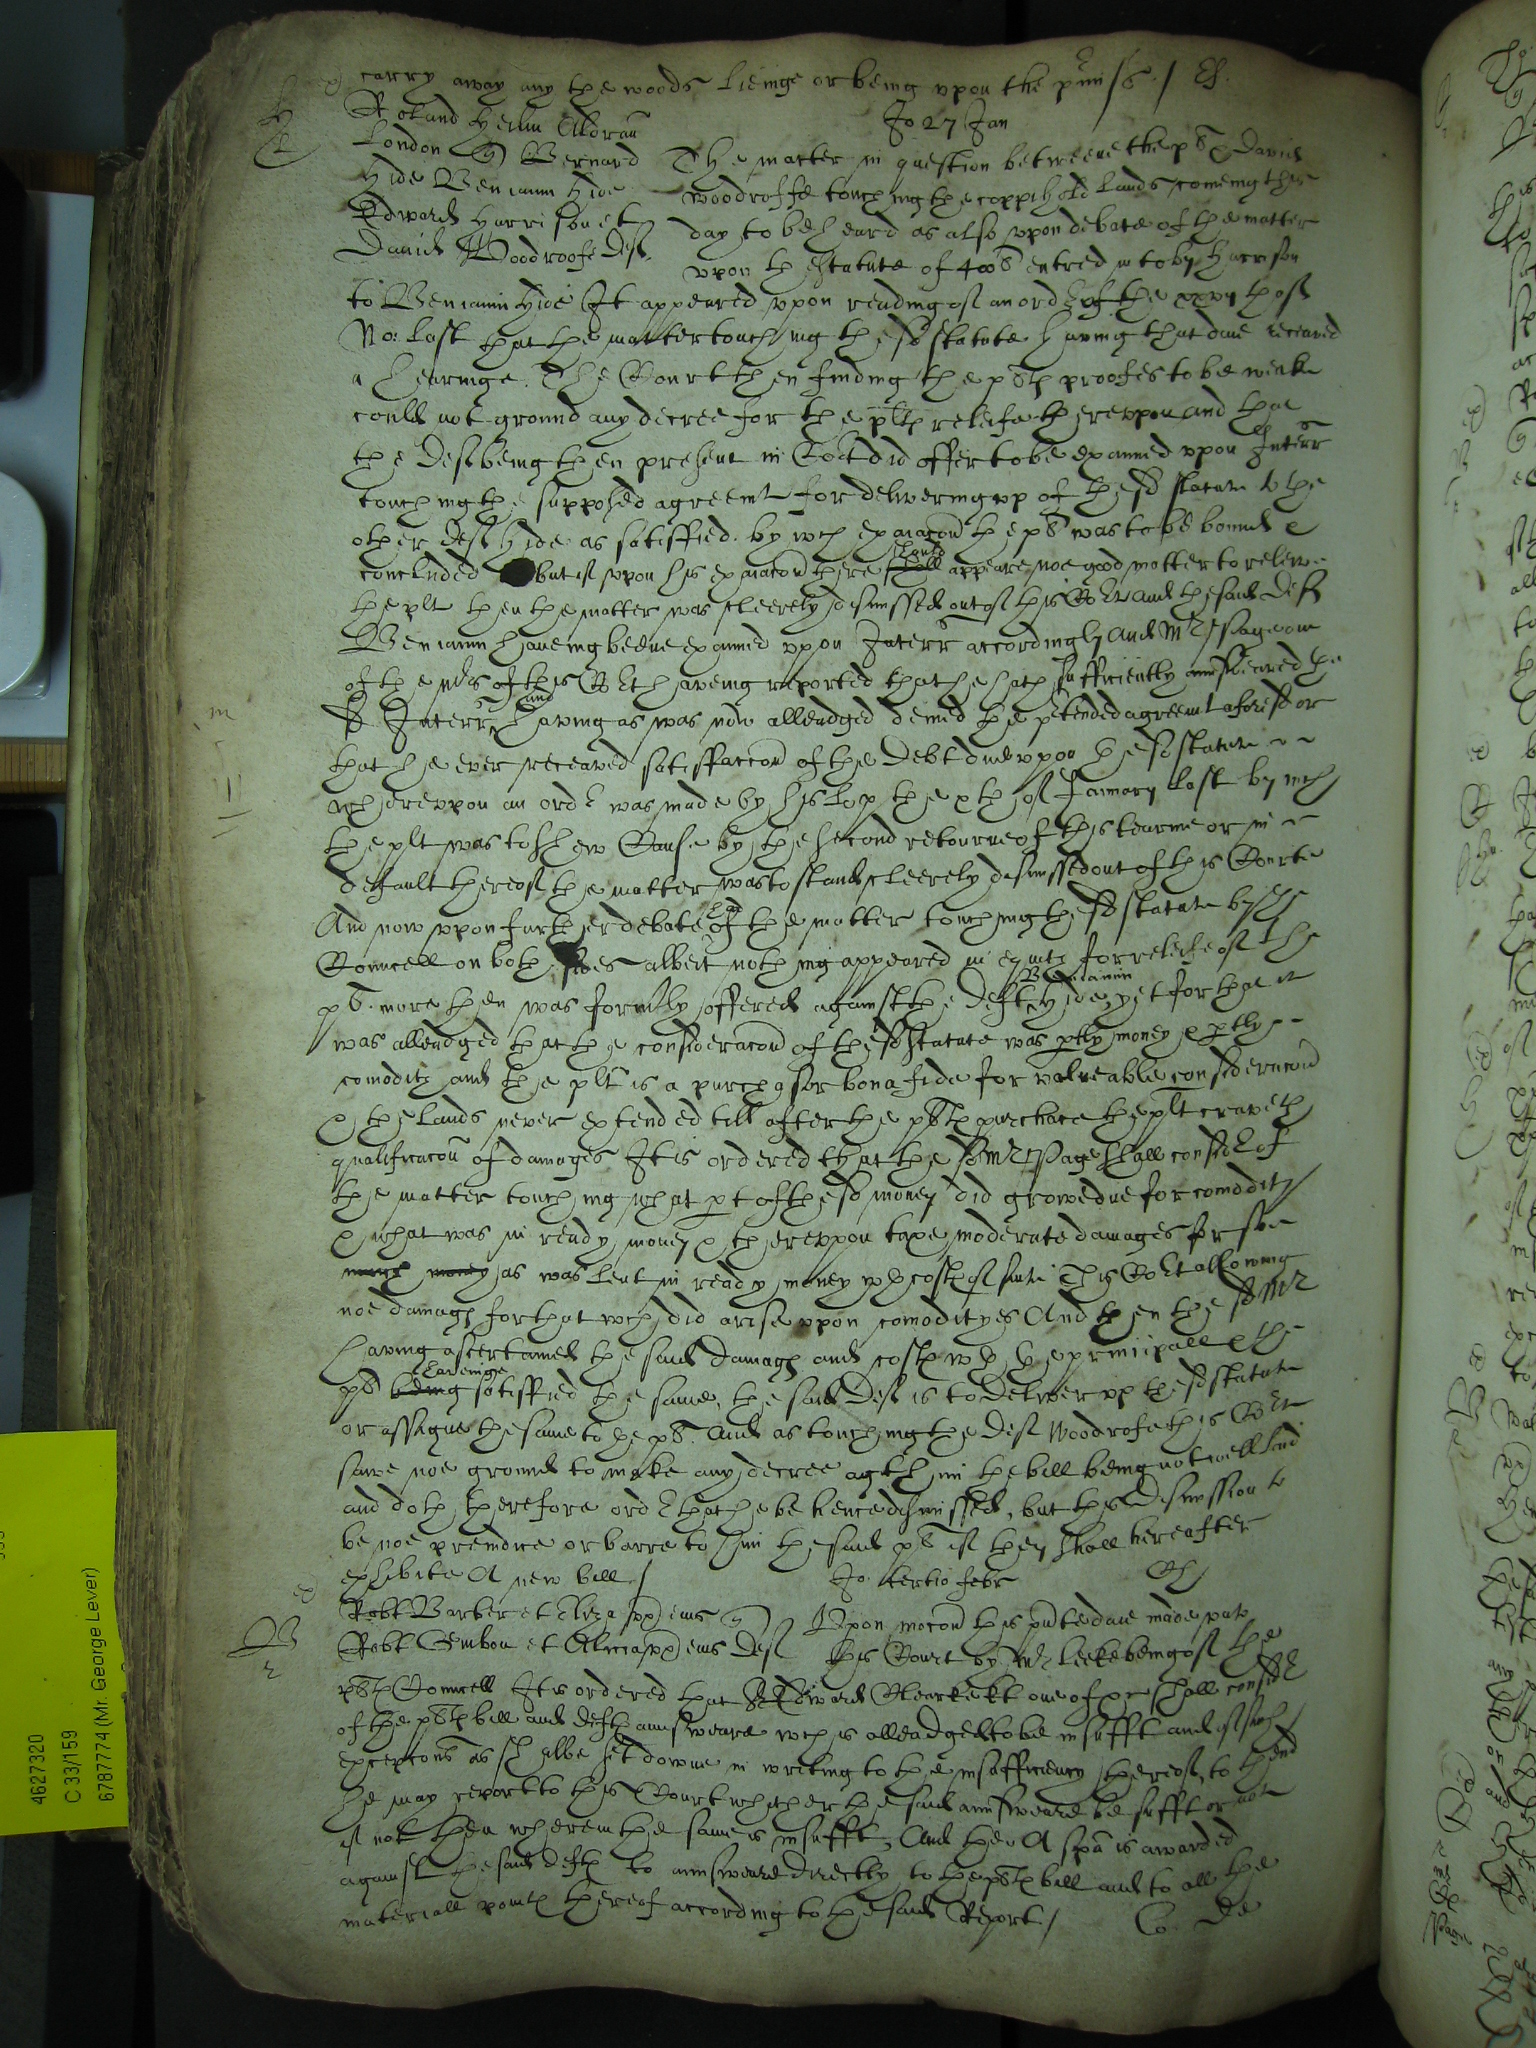 carry away any the woods lieinge or being vpon the pmiss. / Ex.
Rowland Heilin Aldran
Jo 27 Jan
London q Bernard
Hide Beniamin Hide
Edward Harrison et
Daniell Woodroofe Deft.
The matter in question betweene the plt & Daniell
Woodroffe touching the coppihold lands, comeing this
day to be heard as also vpon debate of the matter
vpon the statute of 400l entred into by Harrison
to Beniamin Hide It appeared vpon reading of an order of the xxvijth of
No: last that the matter touching the sd statute having that daie receaved
a hearinge. The Court then finding the plts proofes to be weake
could not ground any decree for the plts releife therevpon and that
the Deft being then present in Cort did offer to be examined vpon Interr
touching the supposed agreemt for delivering vp of the sd statute to the
other Deft Hide as satisfied. by wch examacon the plt was to be bound &
concluded but if vpon his examacon there shall should appeare noe good matter to releive
the plt then the matter was cleerely dismissed out of this Cort and the said Deft
Beniamin haveing beene examined vpon Interr accordingly And Mr Page one
of the mrs of this Cort haveing reported that he hath sufficiently answeared the
sd Interr and having as was now alleadged denied the ptended agreemt aforesd or
that he ever receaved satisfaccon of the Debt due vpon the sd statute
wherevpon an order was made by his Lop the xth of January last by wch
the plt was to shew Cause by the second retourne of this tearme or in
default thereof the matter was to stand cleerely dismissed out of this Courte
And now vpon further debate had of the matter touching the sd statute by the
Councell on both sides albeit nothing appeared in equity for releife of the
plt. more then was formly offered against the deft Beniamin Hide, yet for that it
was alleadged that the consideracon of the sd statute was ptly money & ptly
comodity and the plt is a purchasor bona fide for valueable consideracon
& the lands never extended till after the plts purchace the plt craveth
qualificacon of damages It is ordered that the sd Mr Page shall consider of
the matter touching what pt of the sd money did growe due for comodity
& what was in ready money & therevpon taxe moderate damages for soe
much money as was lent in ready money wth costs of suite This Cort allowing
noe damage for that wch did arise vpon comodityes And then the sd Mr
having ascertained the said damage and costs wth the principall & the
plt being haveinge satisfied the same, the said Deft is to deliver vp the sd statute
or assigne the same to the plt. And as touching the Deft Woodrofe this Cort
sawe noe ground to make any decree agt him the bill being not well laid
and doth therefore order that he be hence dismissed, but this Dismission to
be noe preiudice or barre to him the said plt if they shall hereafter
exhibite A new bill. /
Jo. tertio febr
Robt Barber et Eliza vx eius q
Robt Gembon et Alicia vx eius Deft
Vpon mocon this pnte daie made vnto
this Court by Mr Leeke being of the
plts Councell It is ordered that Sr Edward Clearke kt one of &c shall consider
of the plts bill and defts answeare wch is alleadged to be insufft and of such
excepcons as shalbe set downe in writing to the insufficiency thereof, to thend
he may report to this Court whether the said answeare be sufft or not
if not then wherein the same is insufft, And then A spa is awarded
against the said defts to answeare directly to the plts bill and to all the
materiall points thereof according to the said Report. /
Co. De
4627320
C 33/159
6787774 (Mr. George Lever)